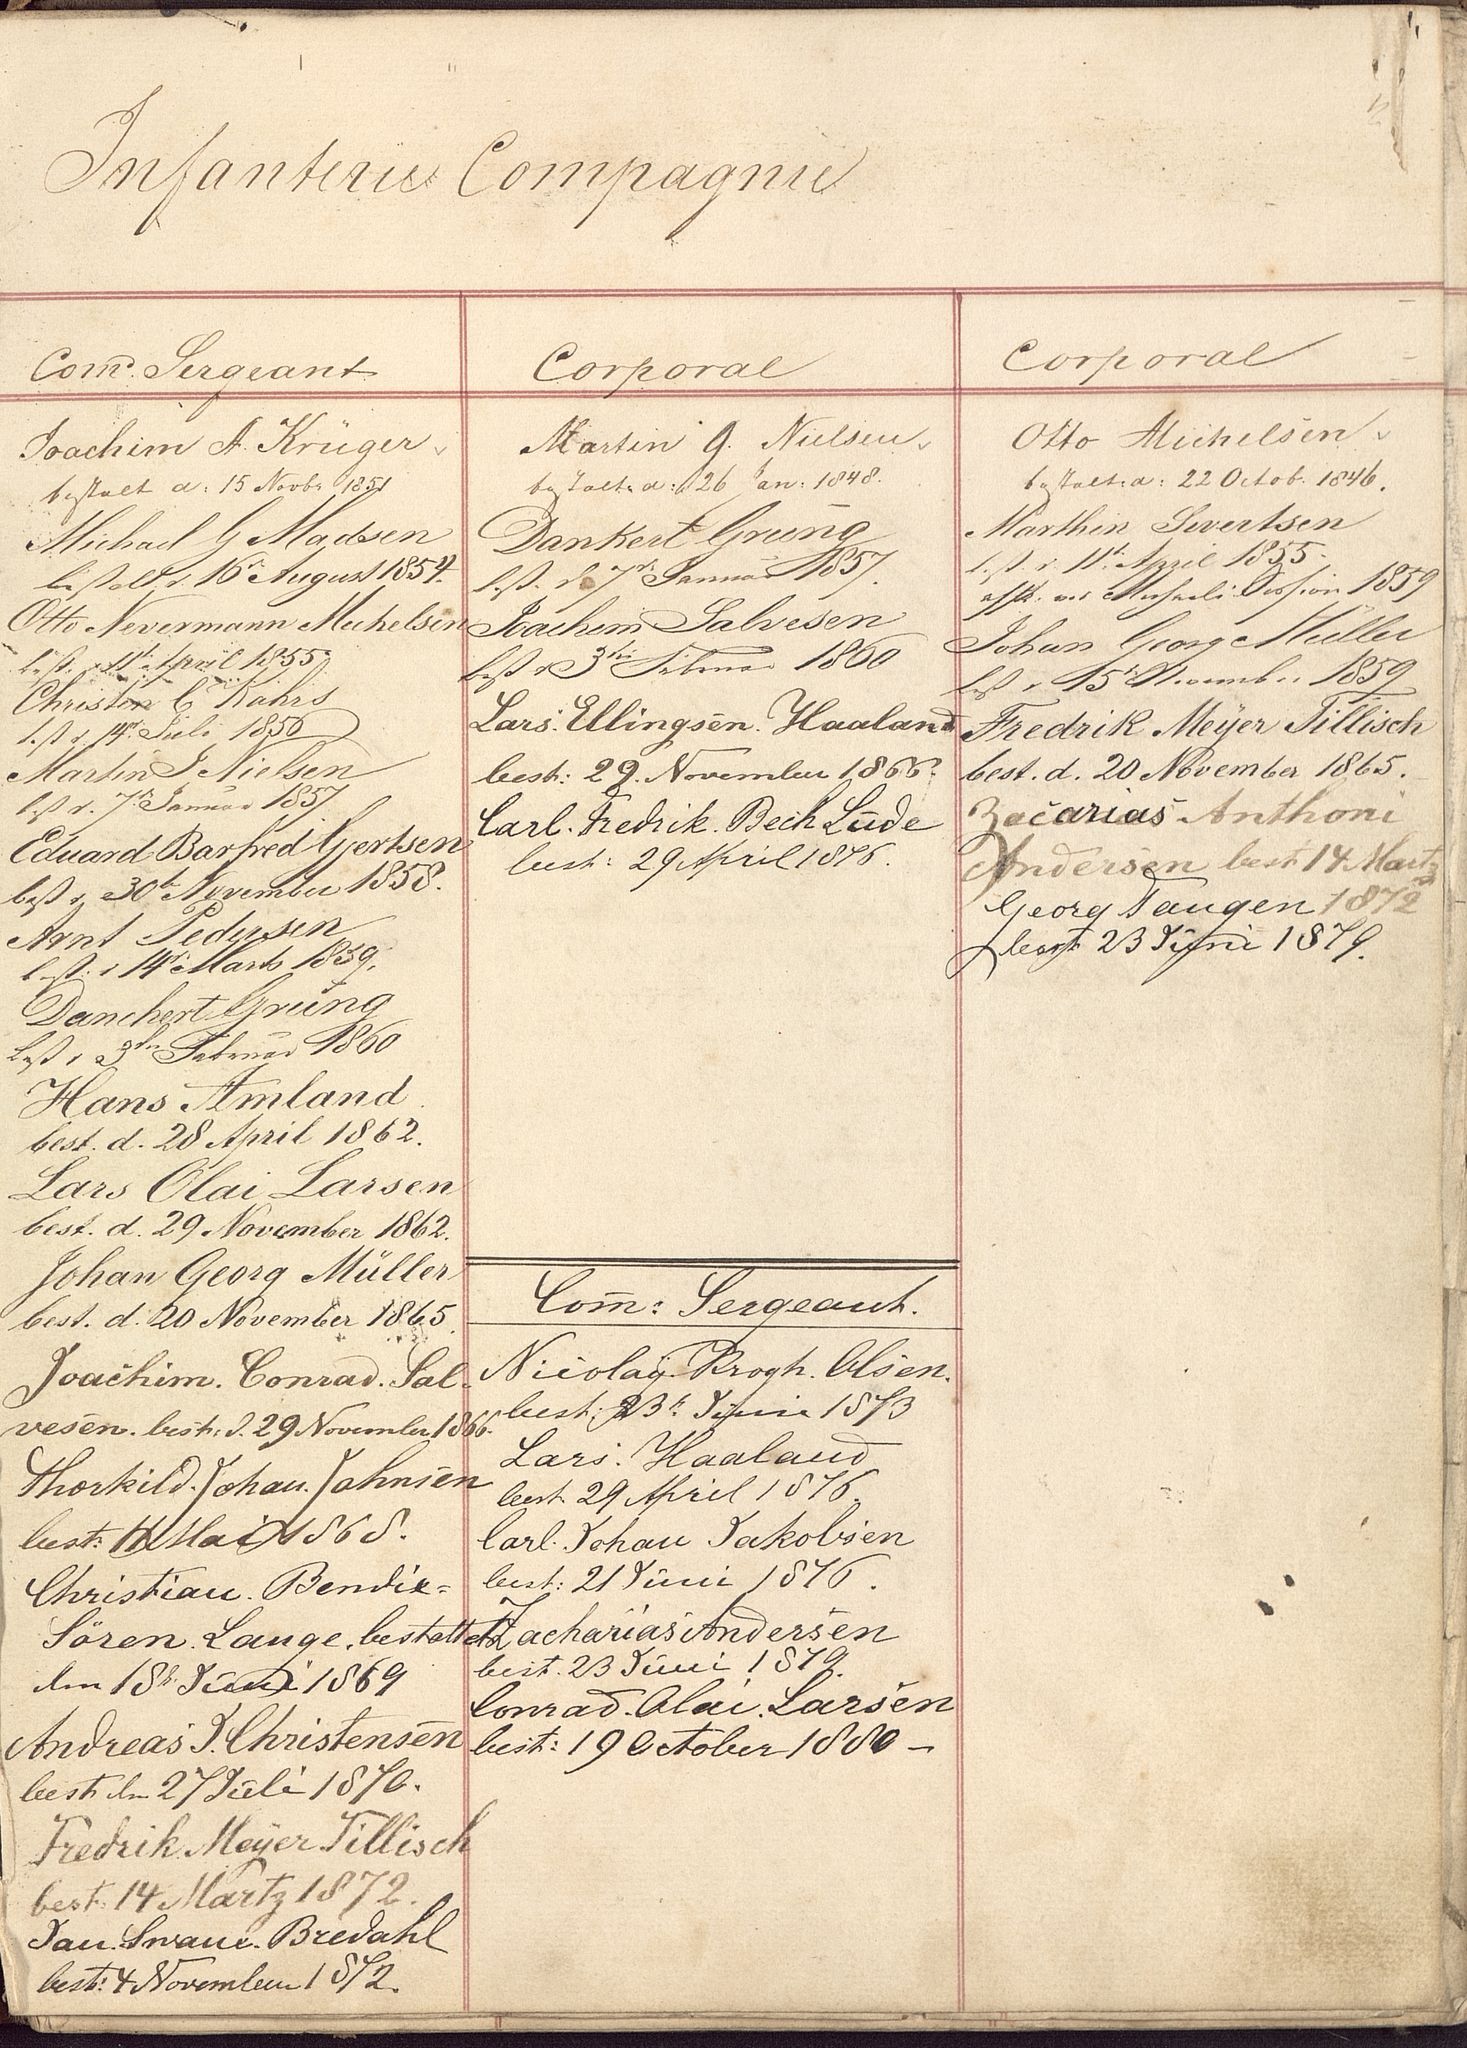 Infanterie Compagnie
Com: Sergeant
Joachim A. Krüger
bestalt d: 15 Novbr 1851
Michael G Madsen
bestalt d. 16de August 1854.
Otto Nevermann Michelsen
best. d. 11te April 1855
Christen C Kahrs
best d. 14de Juli 1856
Martin J Nielsen
best d. 7de Januar 1857
Eduard Barfred Gjertsen
best d. 30te November 1858.
Arnt Pedersen
best: d 14de Marts 1859.
Danchert Grüng
best d 3die Februar 1860
Hans Amland
best. d. 28 April 1862.
Lars Olai Larsen
best. d. 29 November 1862.
Johan Georg Müller
best. d. 20 November 1865.
Joachim. Conrad. Sal-
vesen. best: d. 29 November 1866.
Thorkild. Johan. Johnsen
best: 11 Mai 1868.
Christian. Bendix=
Sören. Lange. bestaltet
den 18de Juni 1869
Andreas J. Christensen
best den 27 Juli 1870.
Fredrik Meÿer Tillisch
best. 14 Martz 1872.
Jan. Swane. Bredahl
best: 4 November 1872.
Corporal
Martin G. Nielsen
bestalt: d: 26 Jan: 1848.
Dankert Grüng
best. d. 7de Januar 1857.
Joachim Salvesen
best d 3die Februar 1860
Lars. Ellingsen. Haaland
best: 29. November 1866.
Carl. Fredrik. Bech Lüde
best: 29 April 1876.
Com: Sergeant.
Nicolaÿ Krogh. Olsen.
best: 23de Juni 1873
Lars. Haaland
best. 29 April 1876.
Carl. Johan Jakobsen
best: 21 Juni 1876.
Zacharias Andersen
best. 23 Juni 1879.
Conrad. Olai. Larsen
best: 19 October 1880 –
Corporal
Otto Michelsen
bestalt: d: 22 Octob. 1846.
Marthin Sivertsen
best. d. 11te April 1855.
afsk. ved Michaeli Session 1859
Johan Georg Müller
best d 15de November 1859
Fredrik Meÿer Tillisch
best. d. 20 November 1865.
Zacarias Anthoni
Andersen best 14 Martz
1872
Georg Taugen
best 23 Juni 1879.